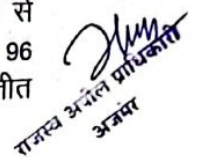 से
96
नीत
राजस्व अपील प्राधिकारी
अजमेर